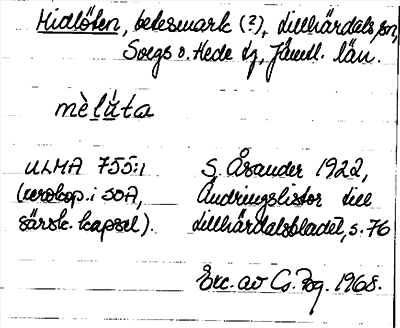 Midlöten, betesmark (?), Lillhärdals sn,
Svegs o. Hede tg, Jämtl. län.
mèlúta
ULMA 755:1 S. Åsander 1922,
(xerokop. i SOA, Ändringslistor till
särsk. kapsel). Lillhärdalsbladet, s. 76
Exc. av Cs. Fog. 1968.